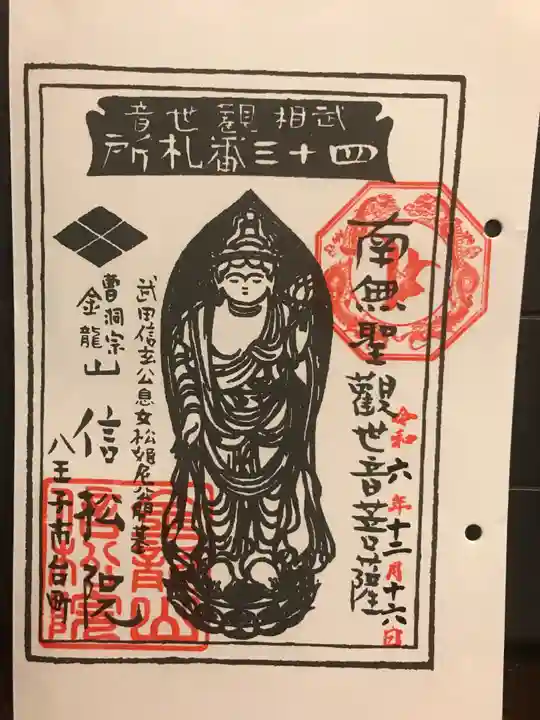 武相観世音
四十三番札所
南無聖観世音菩薩
令和六年十二月十六日
武田信玄公息女松姫尼公開墓
曹洞宗
金龍山
信松院
八王子市台町